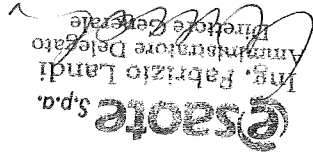 esaote S.p.a.
Ing. Fabrizio Landi
Amministratore Delegato
Direttore Generale